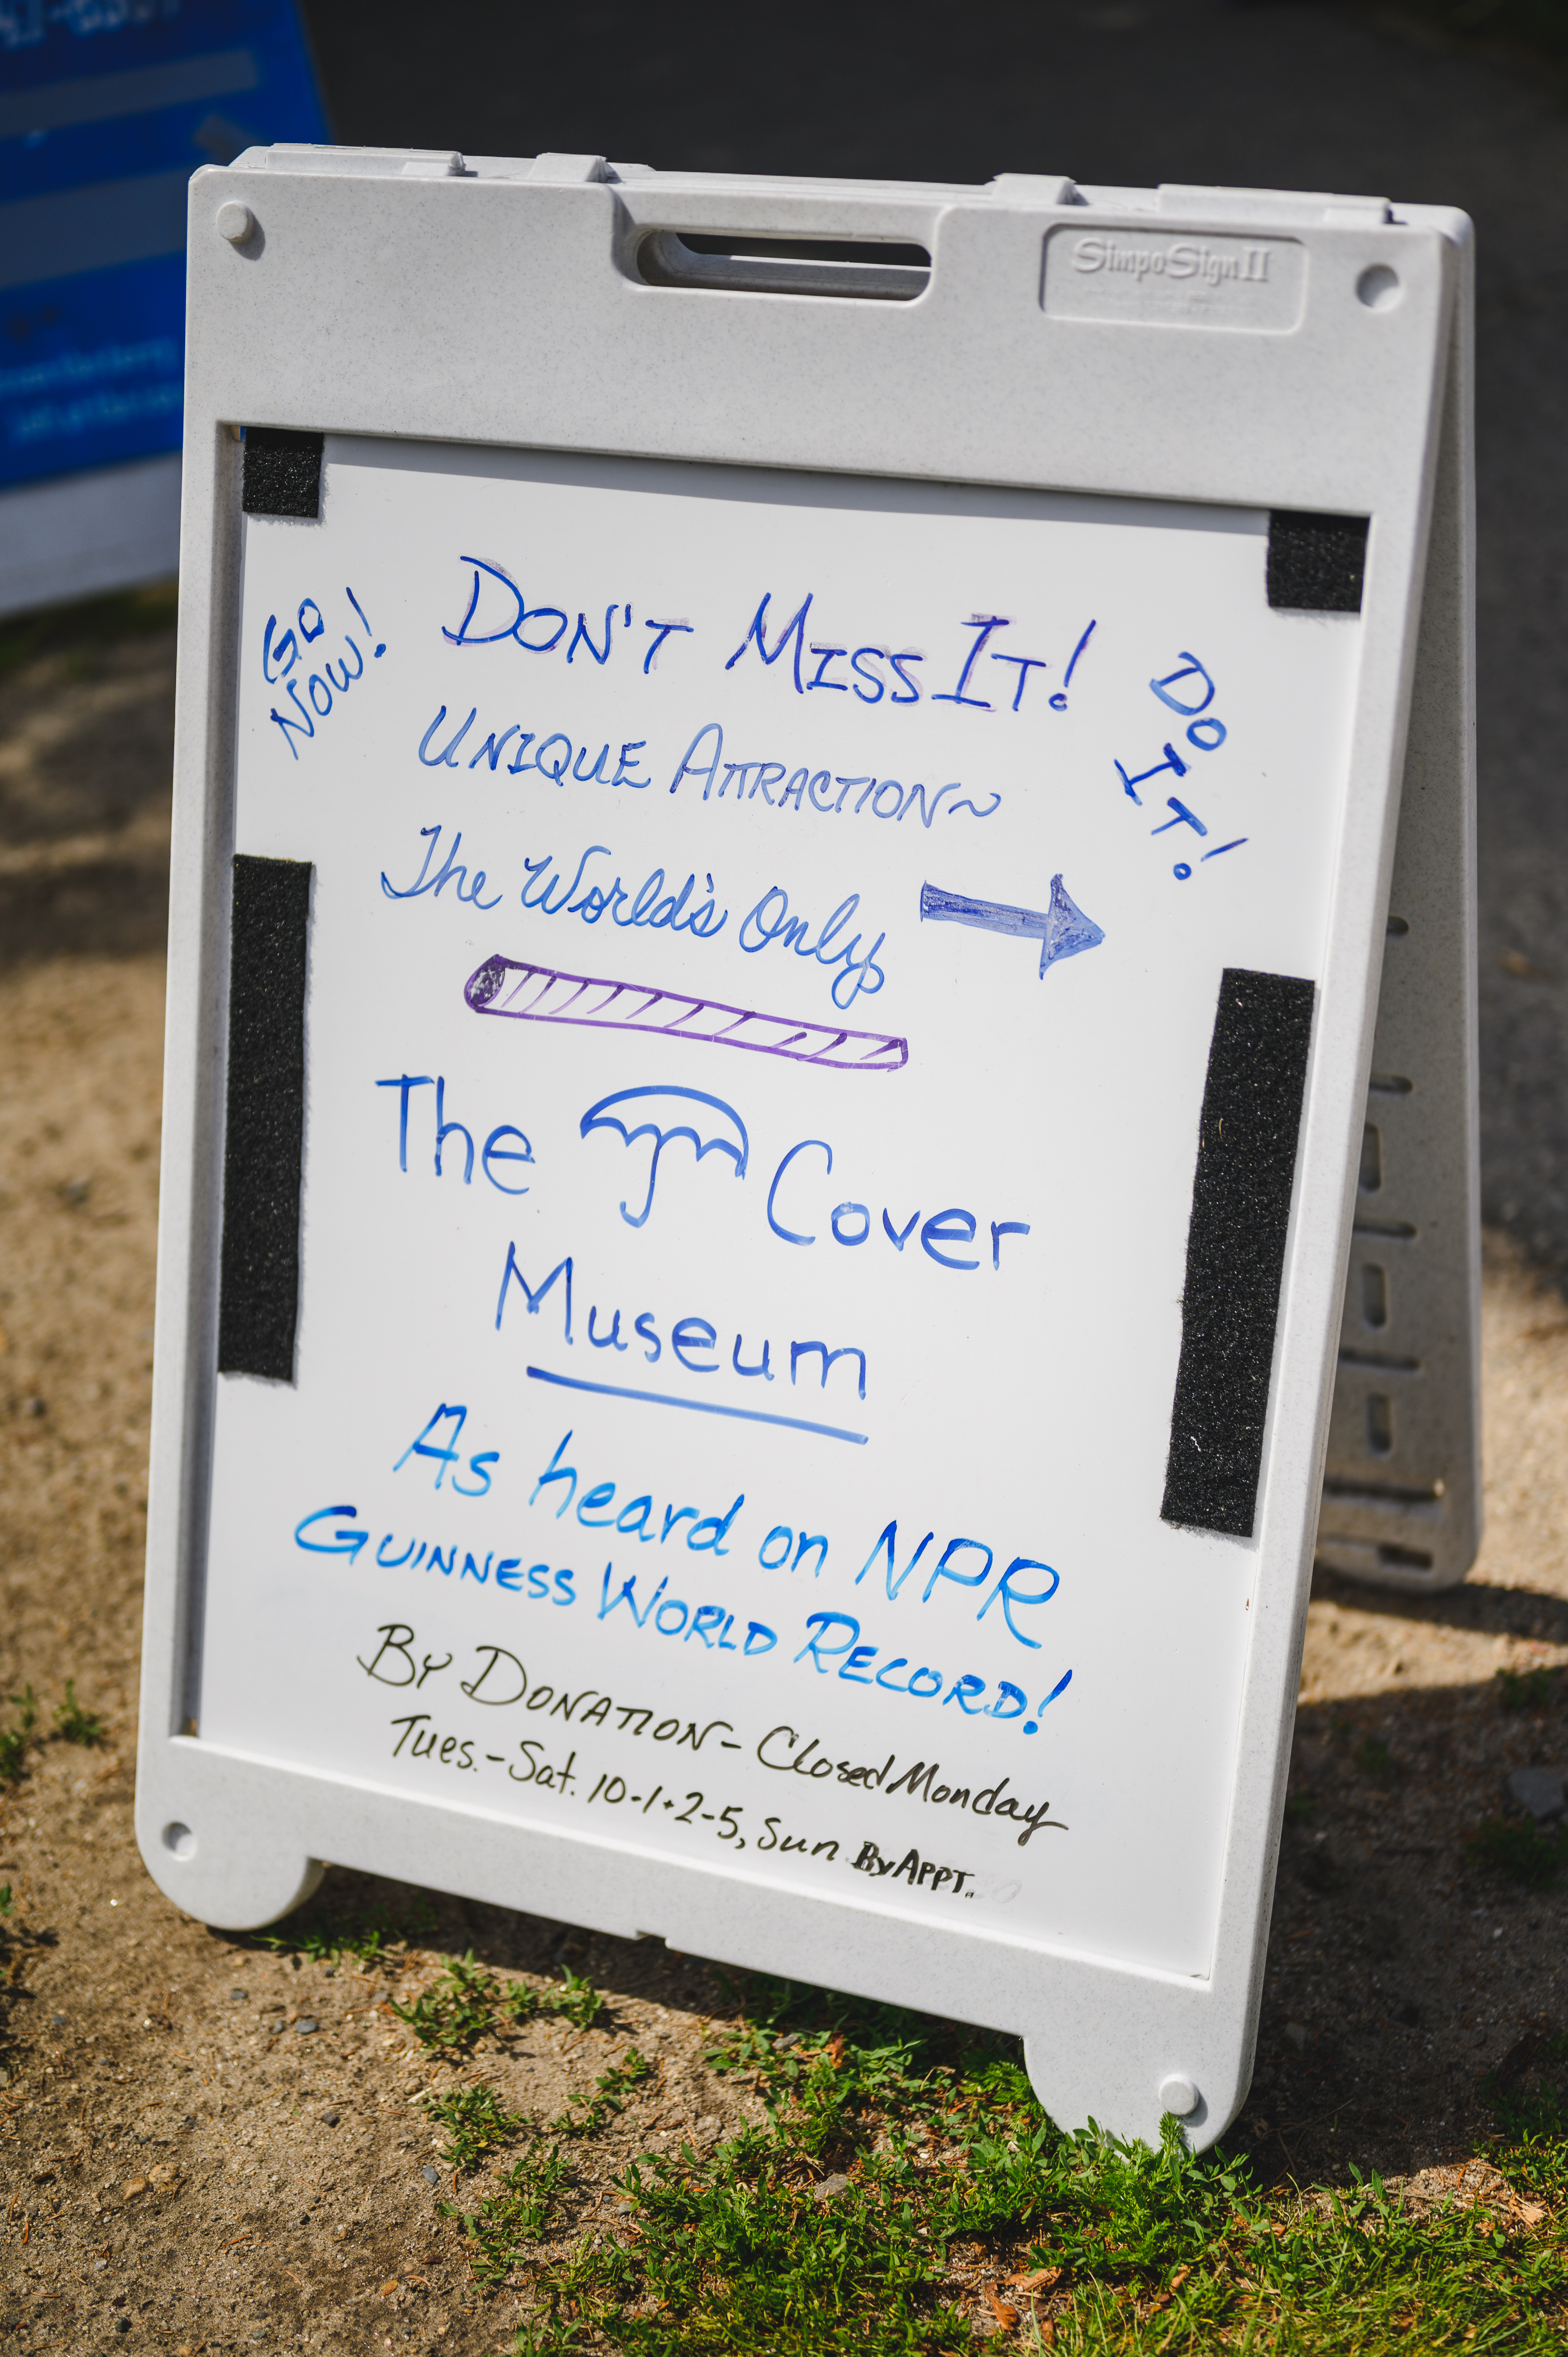 SimpoSign II
Go
Now!
Don't Miss It!
Do
It!
Unique Attraction~
The World's Only
The Cover
Museum
As heard on NPR
Guinness World Record!
By Donation - Closed Monday
Tues.-Sat. 10-1+2-5, Sun By Appt.